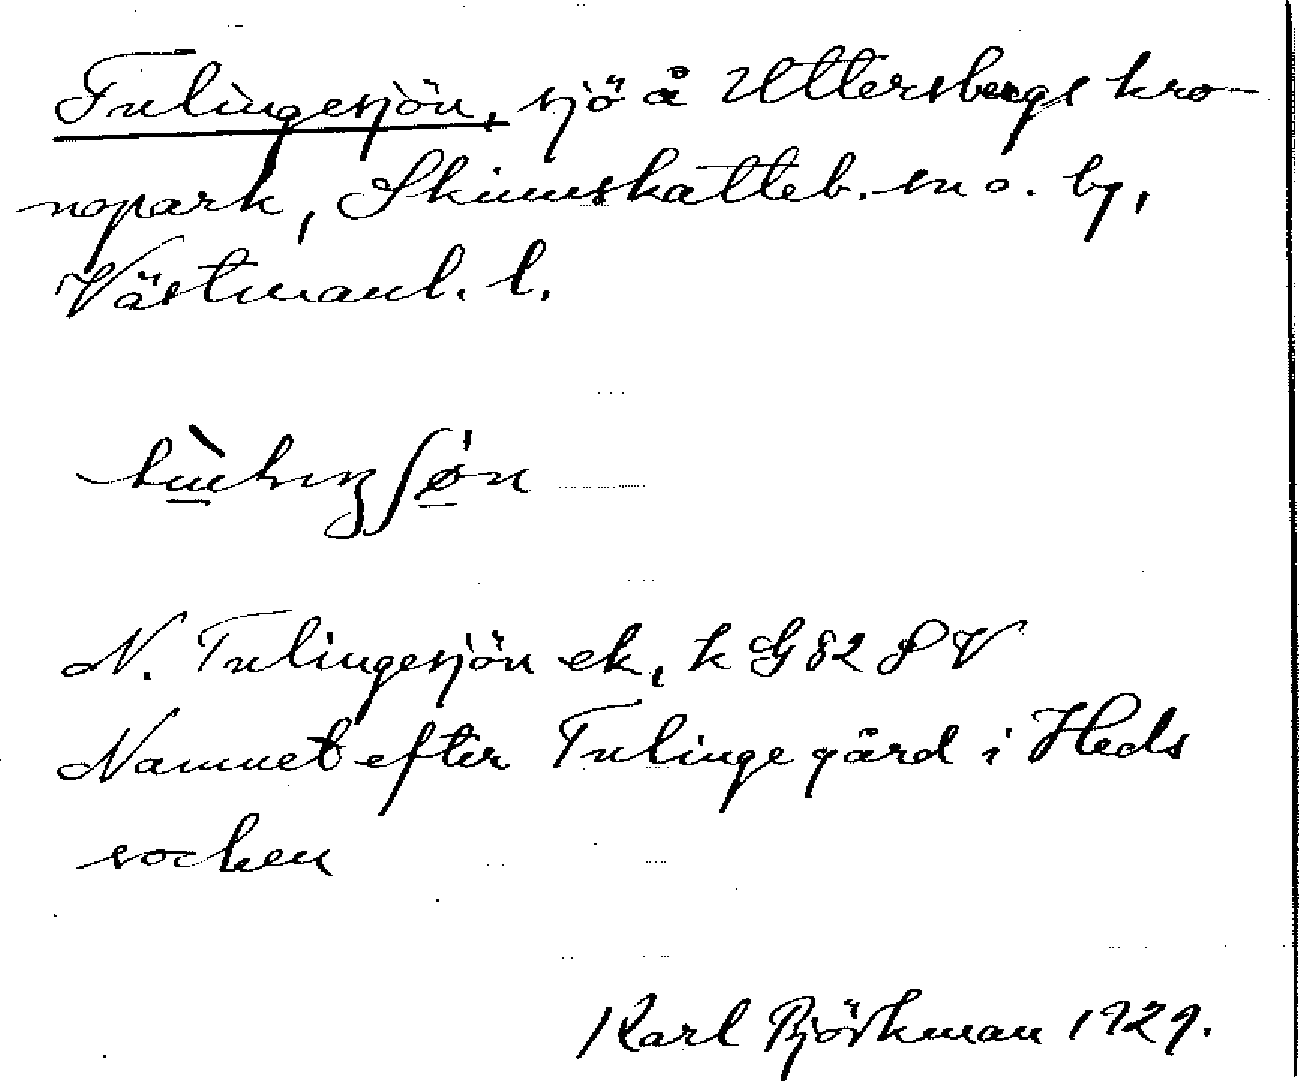 Tulingesjön, sjö å Uttersbergs kro-
nopark, Skinnskatteb. sn o. by,
Västmanl. l.
N. Tulingesjön ek, k G 82 S V
Namnet efter Tulinge gård i Heds
socken
Karl Björkman 1929.